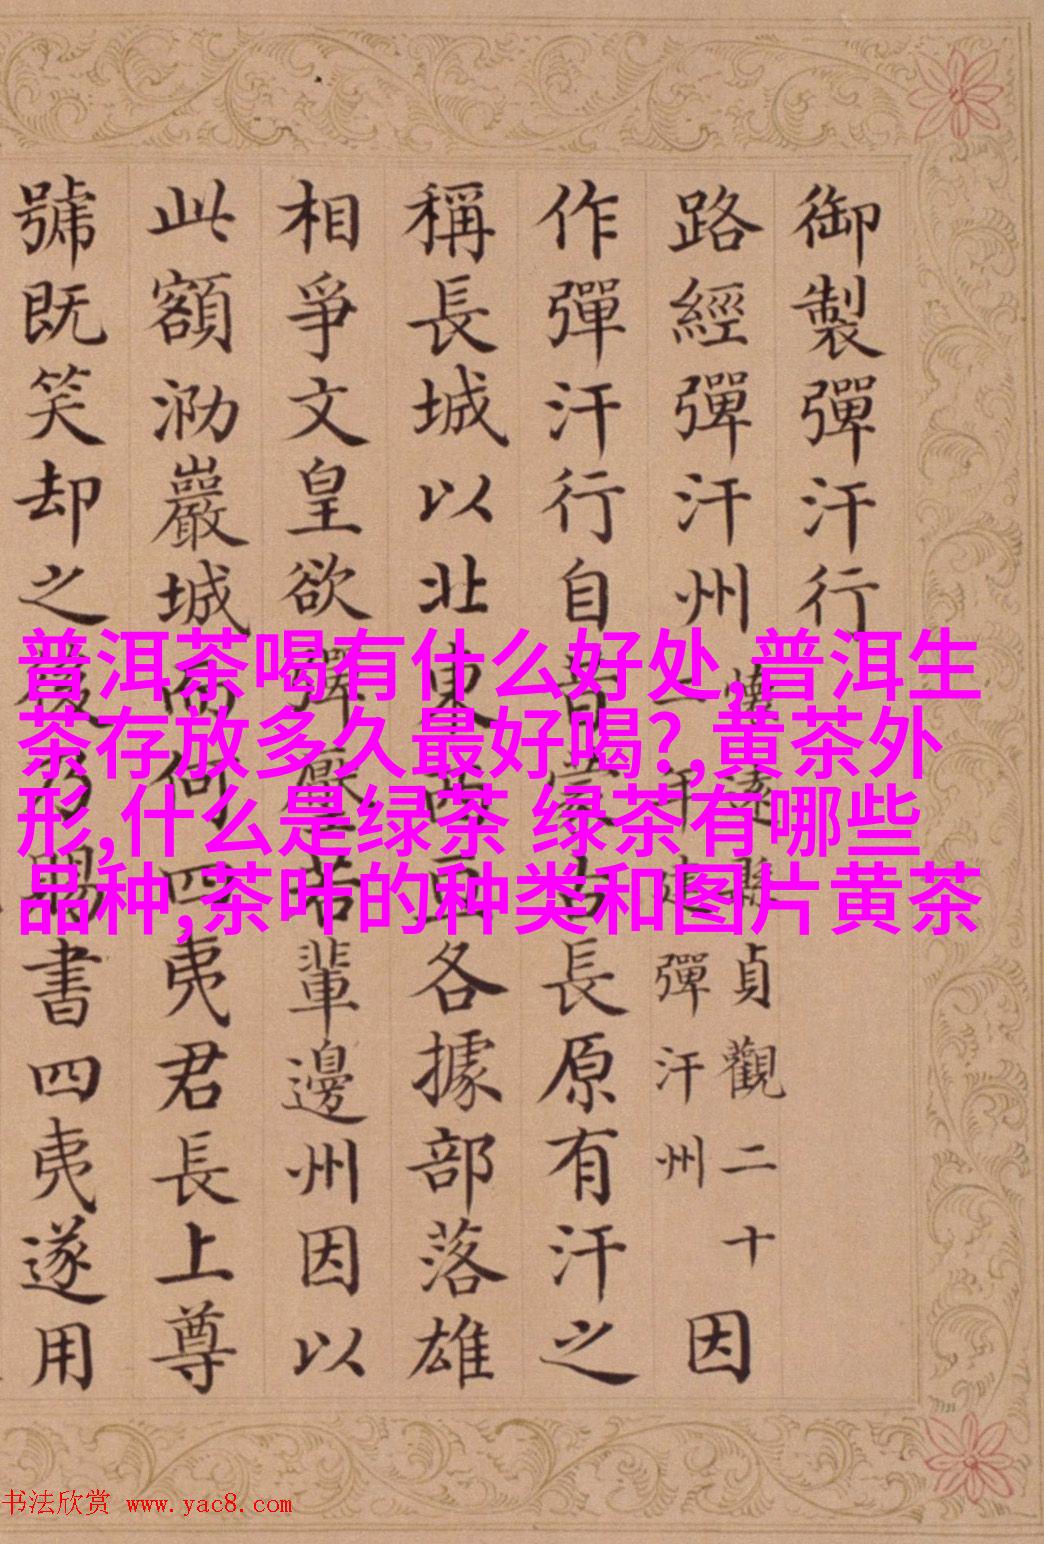 御製彈汗行
路經彈汗州
懷遠縣貞觀二十
一年建彈汗州
因
作彈汗行自昔蒙古長原有汗之
稱長城以北東西各據部落雄
相爭文皇欲彈壓若輩邊州因以
此額泐巖城而何四夷君長上尊
號既笑却之後乃賜書四夷遂用
普洱茶喝有什么好处,普洱生
茶存放多久最好喝?,黄茶外
形,什么是绿茶 绿茶有哪些
品种,茶叶的种类和图片黄茶
书法欣赏 www.yac8.com